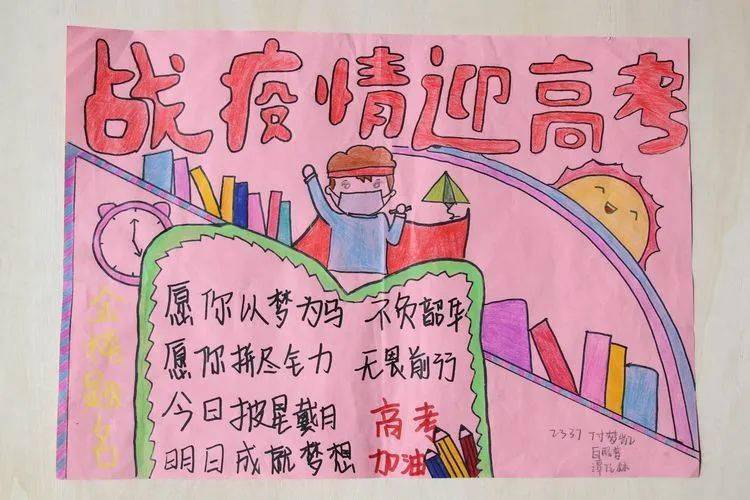 战疫情迎高考
愿你以梦为马 不负韶华
愿你拼尽全力 无畏前行
今日披星戴月 高考
明日成就梦想 加油
金榜题名
2337 付梦凯